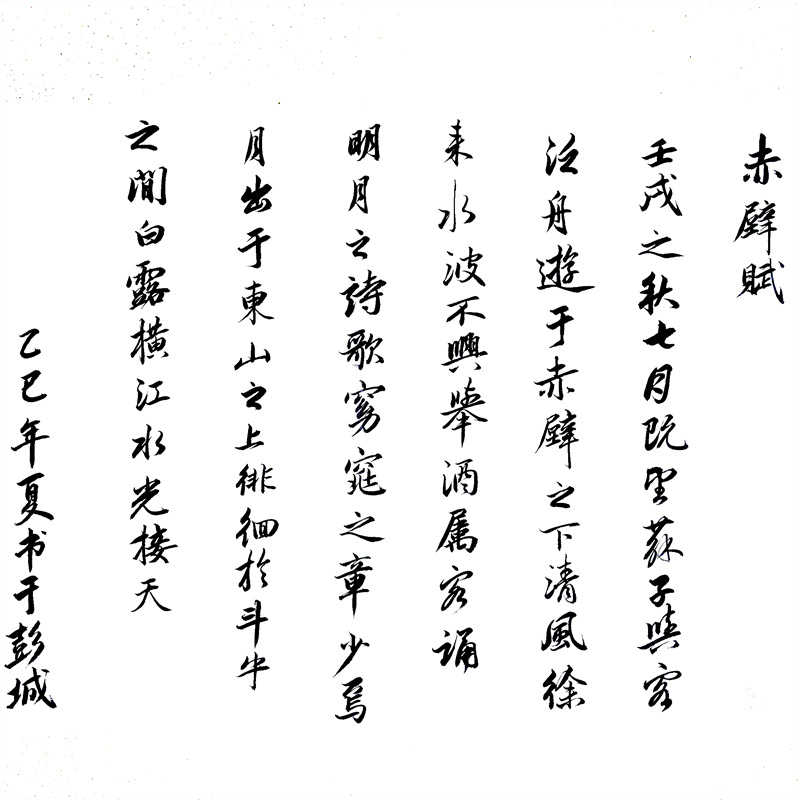 赤壁賦
壬戌之秋七月既望蘇子與客
泛舟遊于赤壁之下清風徐
来水波不興舉酒属客誦
明月之詩歌窈窕之章少焉
月出于東山之上徘徊於斗牛
之間白露橫江水光接天
乙巳年夏书于彭城